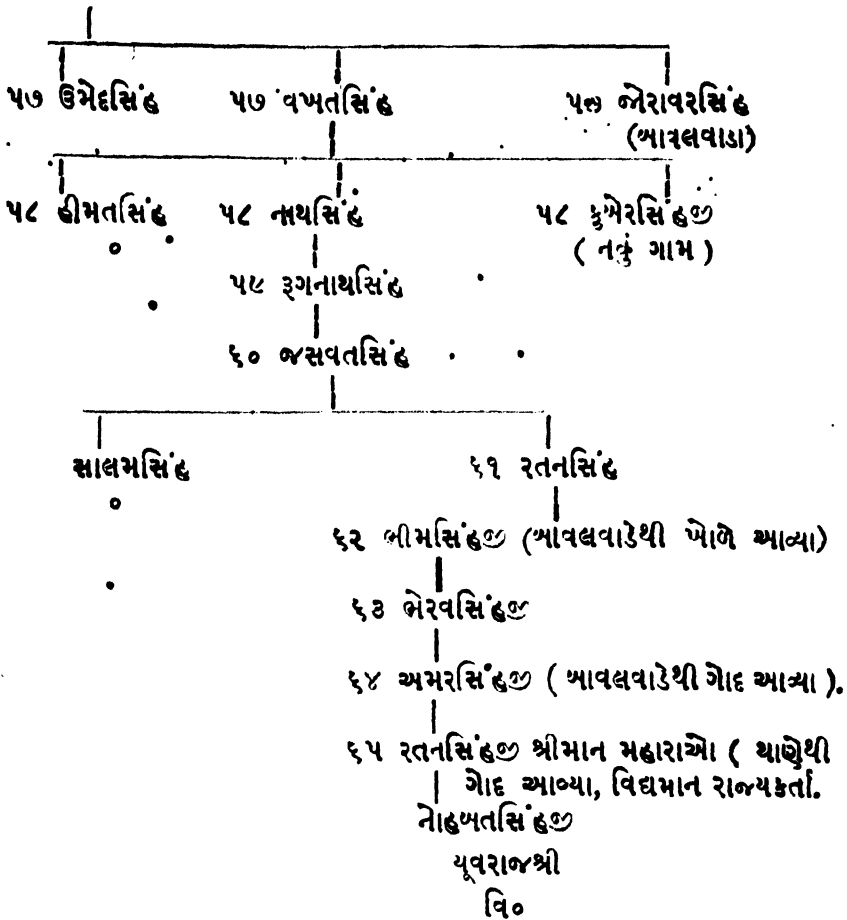 ૫૭ ઉમેદસિંહ ૫૭ વખતસિંહ ૫૭ જોરાવરસિંહ
(બાવલવાડા)
૫૮ હીમતસિંહ ૫૮ નાથસિંહ ૫૮ કુબેરસિંહજી
( નવું ગામ )
૫૯ રૂગનાથસિંહ
૬૦ જસવતસિંહ
સાલમસિંહ ૬૧ રતનસિંહ
૬૨ ભીમસિંહજી (બાવલવાડેથી ખોળે આવ્યા)
૬૩ ભેરવસિંહજી
૬૪ અમરસિંહજી ( બાવલવાડેથી ગોદ આવ્યા ).
૬૫ રતનસિંહજી શ્રીમાન મહારાઓ ( થાણેથી
ગોદ આવ્યા, વિદ્યમાન રાજ્યકર્તા.
મોહબતસિંહજી
યૂવરાજશ્રી
વિ૦